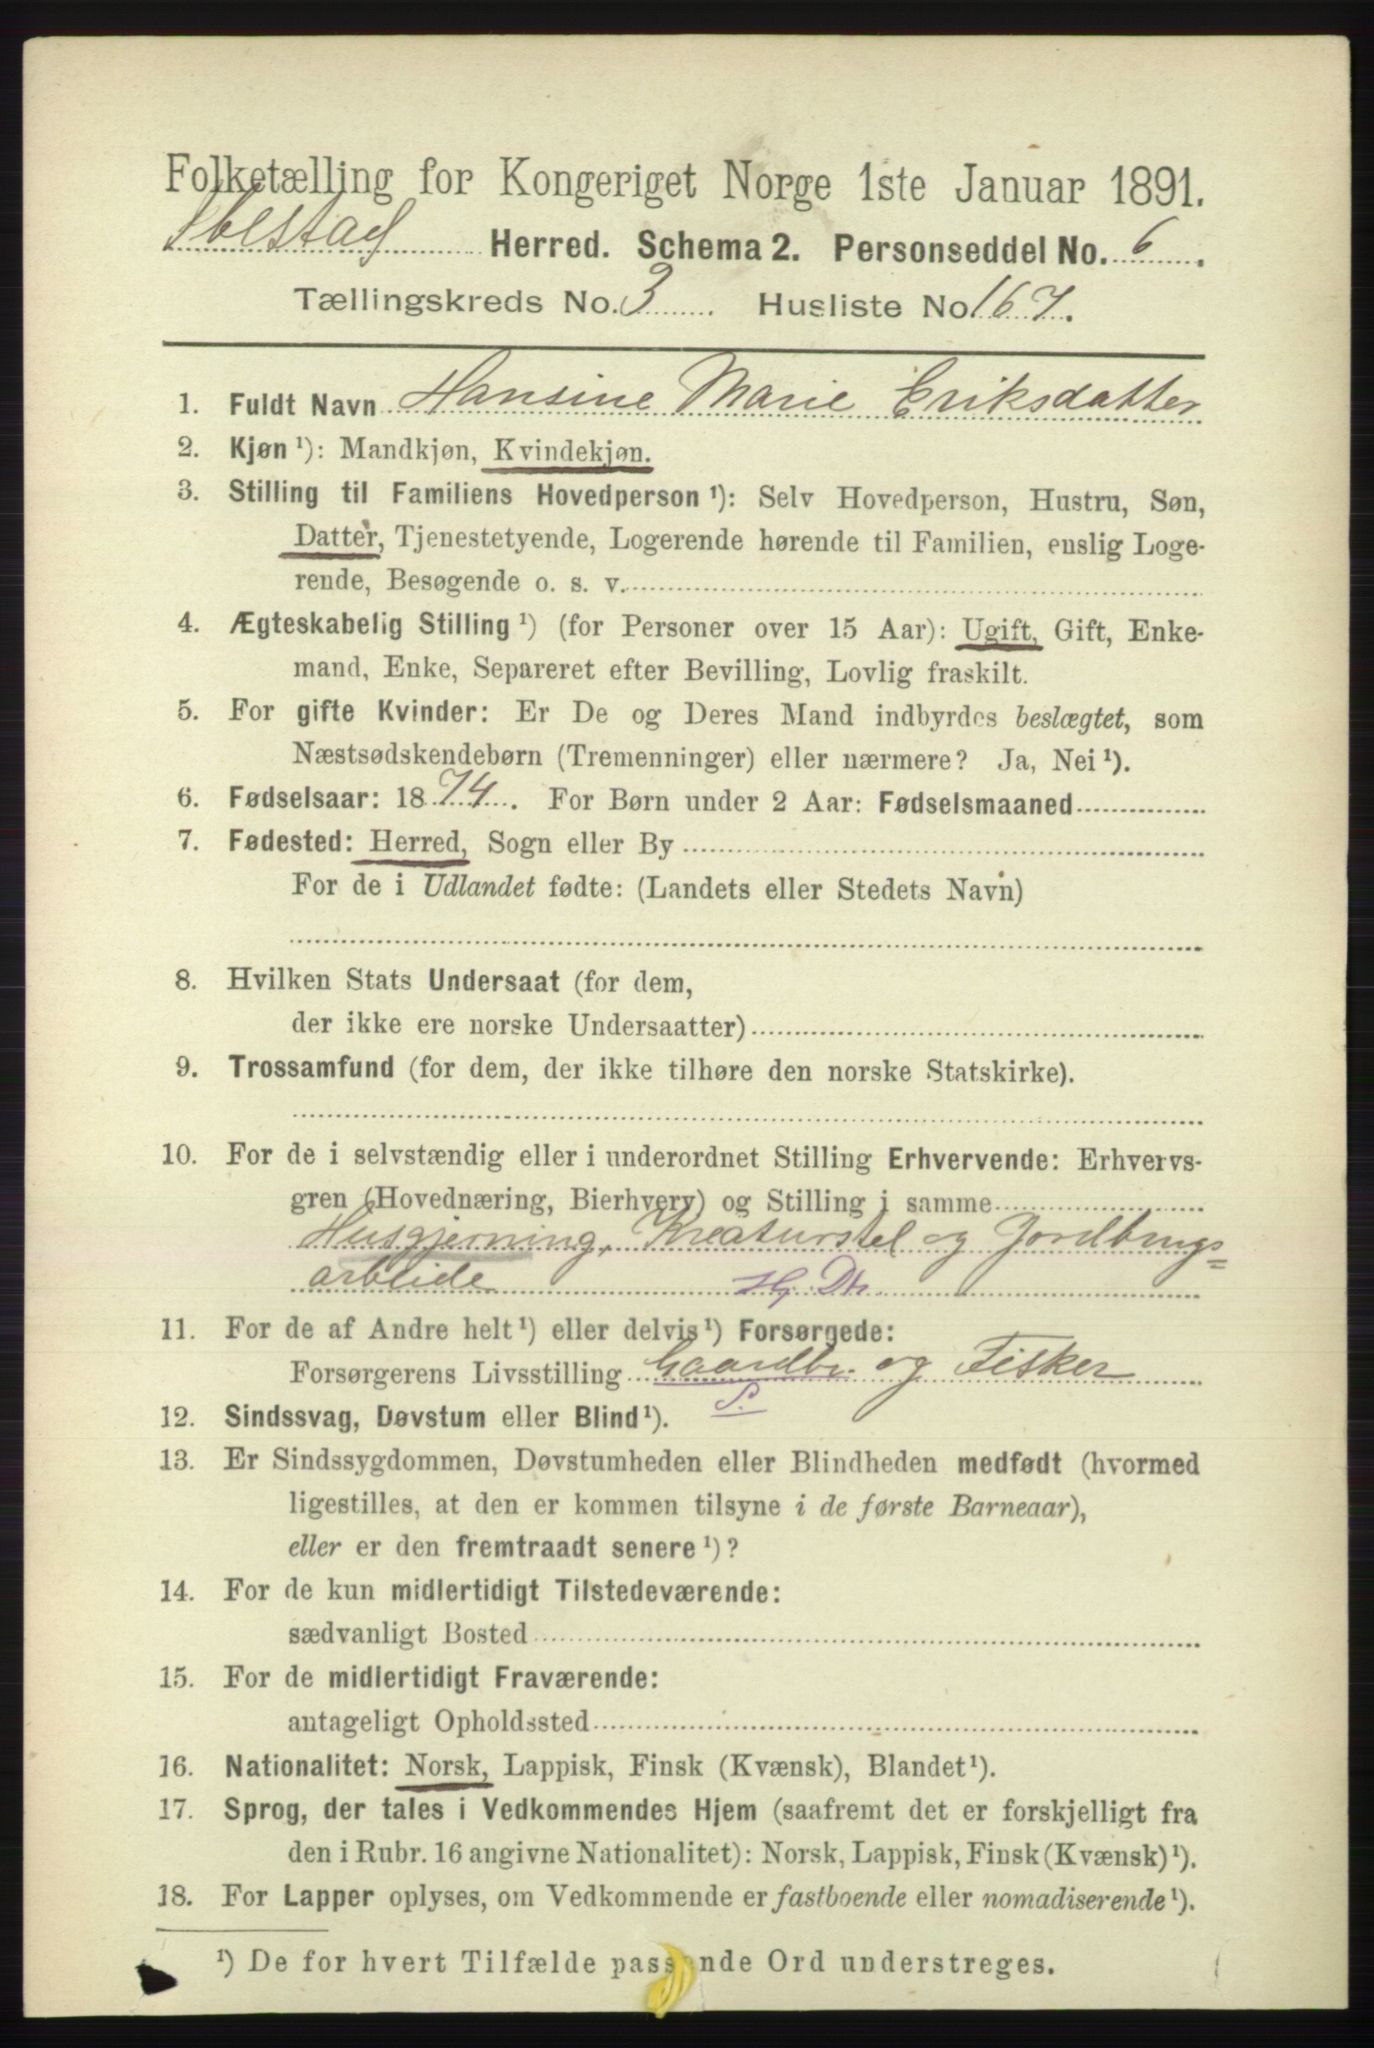 Folketælling for Kongeriget Norge 1ste Januar 1891.
Ibestad Herred. Schema 2. Personseddel No. 6.
Tællingskreds No. 3. Husliste No 167.
1. Fuldt Navn Hansine Marie Eriksdatter
2. Kjøn ¹): Mandkjøn, Kvindekjøn.
3. Stilling til Familiens Hovedperson ¹): Selv Hovedperson, Hustru, Søn,
Datter, Tjenestetyende, Logerende hørende til Familien, enslig Loge-
rende, Besøgende o. s. v.
4. Ægteskabelig Stilling ¹) (for Personer over 15 Aar): Ugift, Gift, Enke-
mand, Enke, Separeret efter Bevilling, Lovlig fraskilt.
5. For gifte Kvinder: Er De og Deres Mand indbyrdes beslægtet, som
Næstsødskendebørn (Tremenninger) eller nærmere? Ja, Nei ¹).
6. Fødselsaar: 1874. For Børn under 2 Aar: Fødselsmaaned
7. Fødested: Herred, Sogn eller By
For de i Udlandet fødte: (Landets eller Stedets Navn)
8. Hvilken Stats Undersaat (for dem,
der ikke ere norske Undersaatter)
9. Trossamfund (for dem, der ikke tilhøre den norske Statskirke).
10. For de i selvstændig eller i underordnet Stilling Erhvervende: Erhvervs-
gren (Hovednæring, Bierhverv) og Stilling i samme
Husgjerning, Kreaturstel og Jordbrugs=
arbeide Hj. Dtr.
11. For de af Andre helt ¹) eller delvis ¹) Forsørgede:
Forsørgerens Livsstilling Gaardbr. og Fisker
S.
12. Sindssvag, Døvstum eller Blind ¹).
13. Er Sindssygdommen, Døvstumheden eller Blindheden medfødt (hvormed
ligestilles, at den er kommen tilsyne i de første Barneaar),
eller er den fremtraadt senere ¹)?
14. For de kun midlertidigt Tilstedeværende:
sædvanligt Bosted
15. For de midlertidigt Fraværende:
antageligt Opholdssted
16. Nationalitet: Norsk, Lappisk, Finsk (Kvænsk), Blandet ¹).
17. Sprog, der tales i Vedkommendes Hjem (saafremt det er forskjelligt fra
den i Rubr. 16 angivne Nationalitet): Norsk, Lappisk, Finsk (Kvænsk) ¹).
18. For Lapper oplyses, om Vedkommende er fastboende eller nomadiserende ¹).
¹) De for hvert Tilfælde passende Ord understreges.